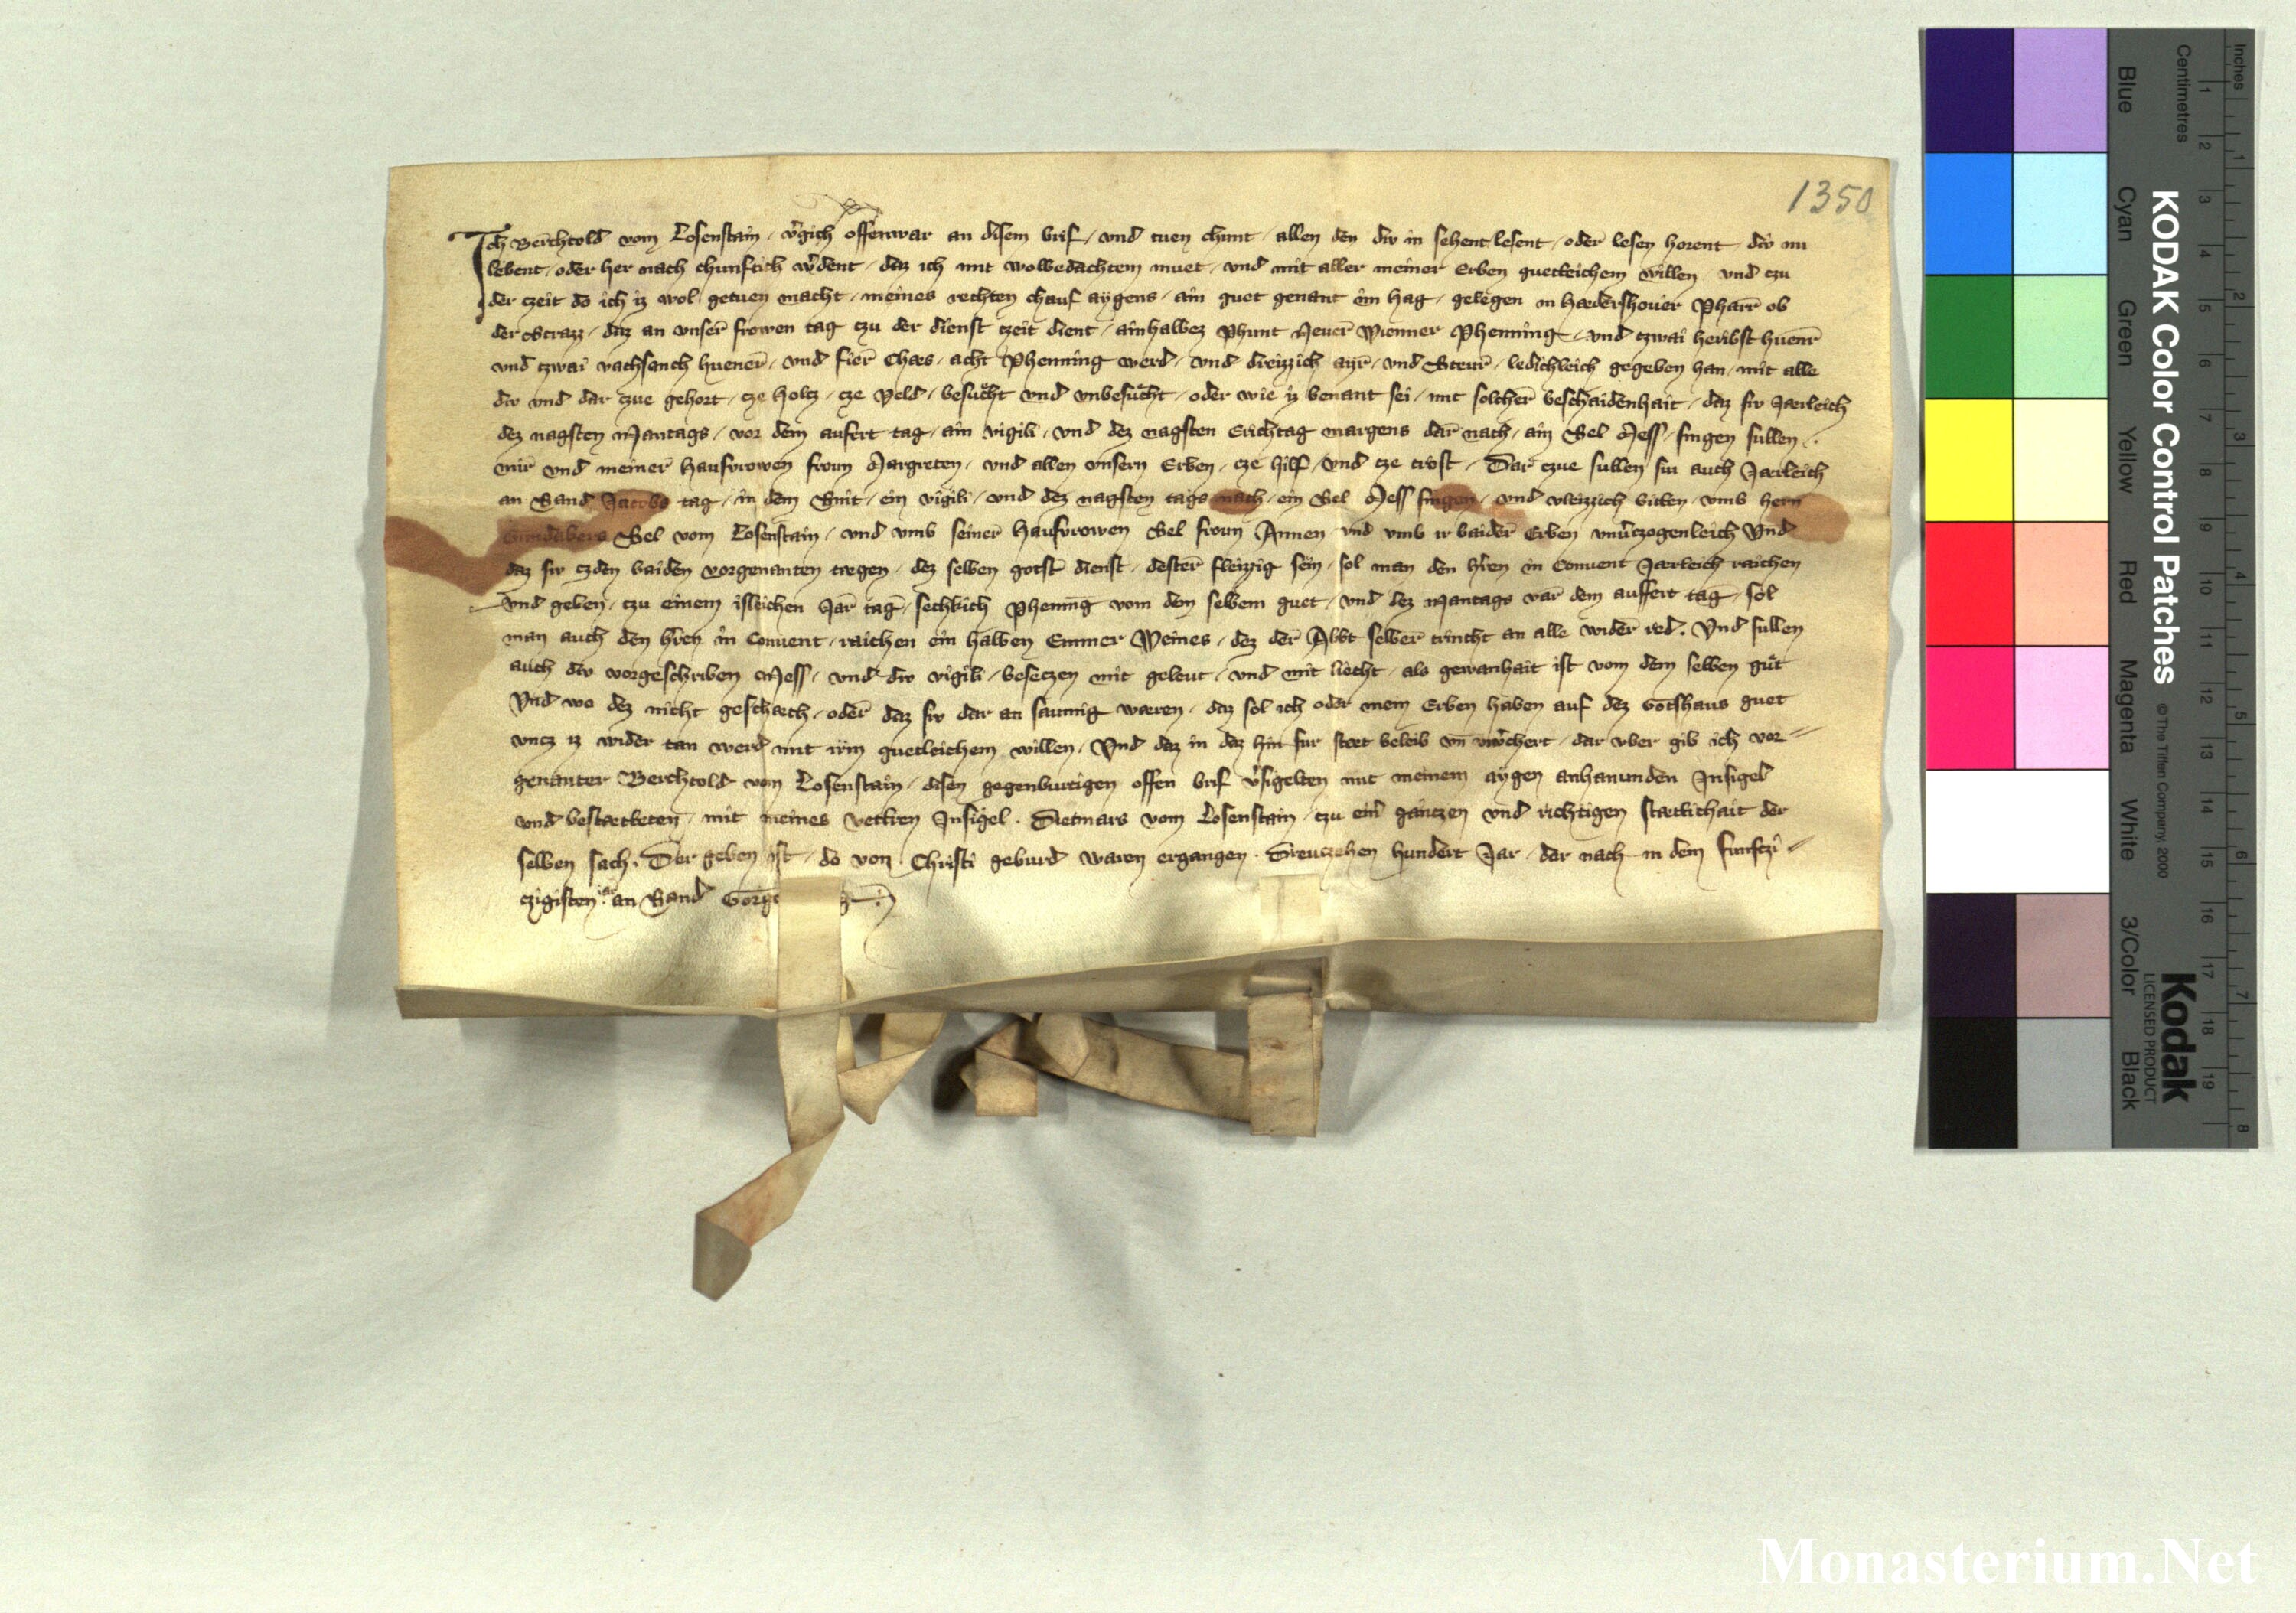 1350
Ich Berchtold vom Losenstain v̄gich offenwar an disem brif und tuen chunt allen den div in sehent lesent oder lesen horent div nu
lebent oder her nach chunftich w̄dent daz ich mit wolbedachtem muet und mit aller meiner Erben guetleichem willen und czu
der czeit do ich iz wol getuen macht meines rechten chauf aygens ain guet genant im Hag gelegen in Hædershover Pharr ob
der Strazz daz an unser frowen tag czu der dienst czeit dient ainhalbez phunt Newer Wienner Phenning und czwai heribst huenr
und czwai vachsanch huener und fier Chæs acht Phenning werd und dreizzich ayr und Steur ledichleich gegeben han mit alle
div und dar czue gehort cze holcz cze veld besucht und unbesucht oder wie iz benant sei mit solcher beschaidenhait daz siv Jærleich
dez nagsten Mantags vor dem aufert tag ain vigili und dez nagsten Erichtag margens dar nach ain Sel Mess singen sullen
mir und meiner hausvrowen froun Margreten und allen unsern Erben cze hilf und cze trost Dar czue sullen siu auch Jærleich
an Sand Jacobs tag in dem Snit ein vigili und dez nagsten tags nach ein Sel Mess singen und vleizzich bitten umb hern
Gundakers Sel vom Losenstain und umb seiner hausvrowen Sel froun Annen und umb ir baider Erben unv̄czogenleich Und
daz siv czden baiden vorgenanten tægen dez selben gotst dienst dester fleizzig sein sol man den hr̄en in Convent Jærleich raichen
und geben czu einem isleichen Jar tag sechkich phening vom dem selbem guet und dez Mantags var dem auffert tag sol
man auch den hr̄en in Convent raichen ein halben Emmer Weines dez der Abbt selber trincht an alle wider red. Und sullen
auch div vorgeschriben Mess und div vigili beseczen mit geleut und mit liecht als gewanhait ist vom dem selben gut
Und wo dez nicht geschæch oder daz siv dar an saumig wæren daz sol ich oder mein Erben haben auf dez Gotshaus guet
uncz iz wider tan werd mit irm guetleichem willen Und daz in daz hin fur stæt beleib un̄ dar uber gib ich vor=
genanter Berchtold vom Losenstain disen gegenburtigen offen brif v̄sigelten mit meinem aygen anhanunden Insigel
und bestætteten mit meines vettren Insigel. Dietmars vom Losenstain czu ein̄ ganczen und richtigen stætichait der
selben sach. Der geben ist do von Christi geburd waren ergangen. Dreuczehen hundert Jar dar nach in dem funfczi=
czigisten iar an Sand Gorge
KODAK Color Control Patches
© The Tiffen Company, 2000
Kodak
LICENSED PRODUCT
Blue Cyan Green Yellow Red Magenta White 3/Color Black
Centimetres 1 2 3 4 5 6 7 8 9 10 11 12 13 14 15 16 17 18 19
Inches 1 2 3 4 5 6 7 8
Monasterium.Net